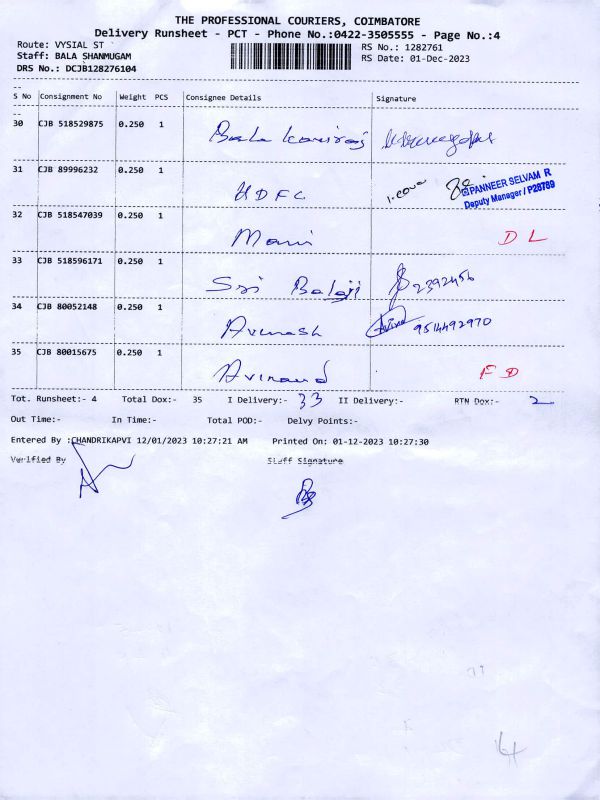 THE PROFESSIONAL COURIERS, COIMBATORE
Delivery Runsheet - PCT - Phone No.:0422-3505555 - Page No.:4
Route: VYSIAL ST
Staff: BALA SHANMUGAM
DRS No.: DCJB128276104
RS No.: 1282761
RS Date: 01-Dec-2023
S No Consignment No Weight PCS Consignee Details Signature
30 CJB 518529875 0.250 1 Bala
31 CJB 89996232 0.250 1 HDFC 1-cover
PANNEER SELVAM R
Deputy Manager / P28789
32 CJB 518547039 0.250 1 Mani DL
33 CJB 518596171 0.250 1 Sri Balaji 2392456
34 CJB 80052148 0.250 1 Avinash 9514492970
35 CJB 80015675 0.250 1 FD
Tot. Runsheet:- 4 Total Dox:- 35 I Delivery:- 33 II Delivery:- RTN Dox:- 2
Out Time:- In Time:- Total POD:- Delvy Points:-
Entered By :CHANDRIKAPVI 12/01/2023 10:27:21 AM Printed On: 01-12-2023 10:27:30
Verified By Staff Signature